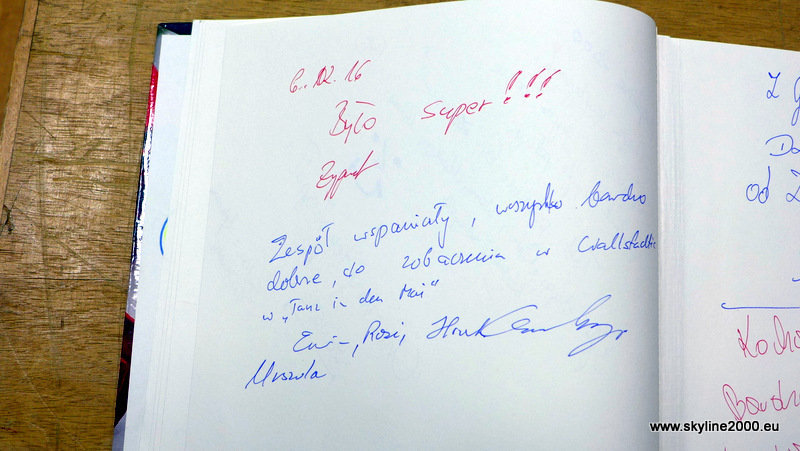 6.12.16
Było super!!!
Zespół wspaniały, wszystko bardzo
dobre, do zobaczenia w
w "Tanz in den Mai"
Rosi,
Urszula
Z
Do
od Z
Kocha
Bardz
www.skyline2000.eu